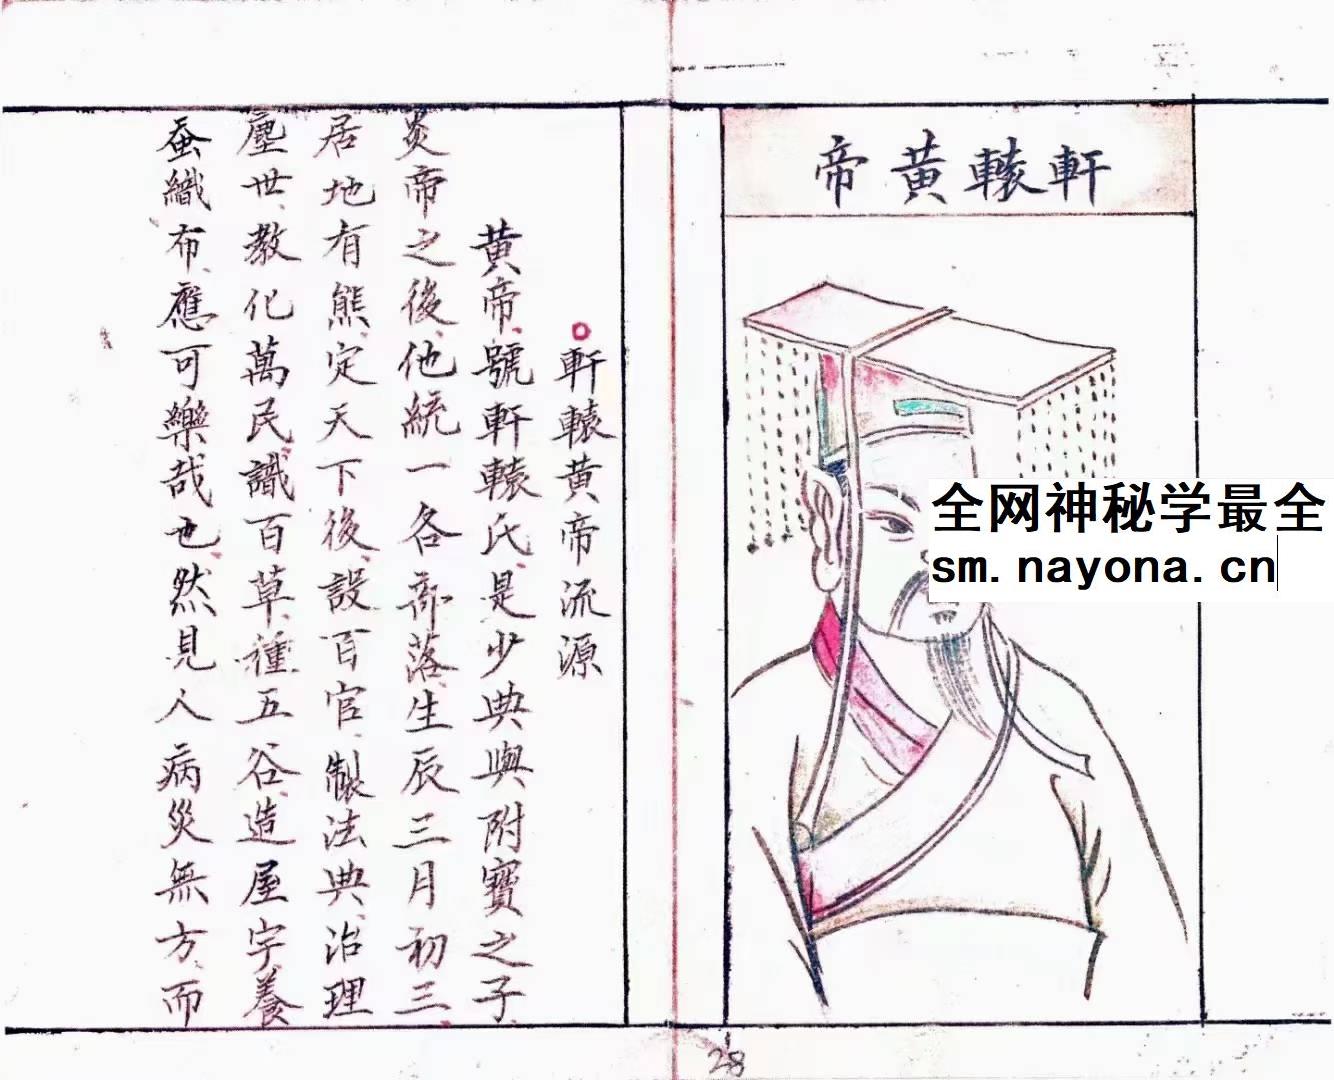 軒轅黃帝
全网神秘学最全
sm.nayona.cn
軒轅黃帝流源
黃帝、號軒轅氏、是少典與附寶之子、
炎帝之後、他統一各部落、生辰三月初三、
居地有熊、定天下後、設百官、製法典、治理
塵世、教化萬民、識百草、種五谷、造屋宇、養
蚕織布、應可樂哉也、然見人病災無方、而
28